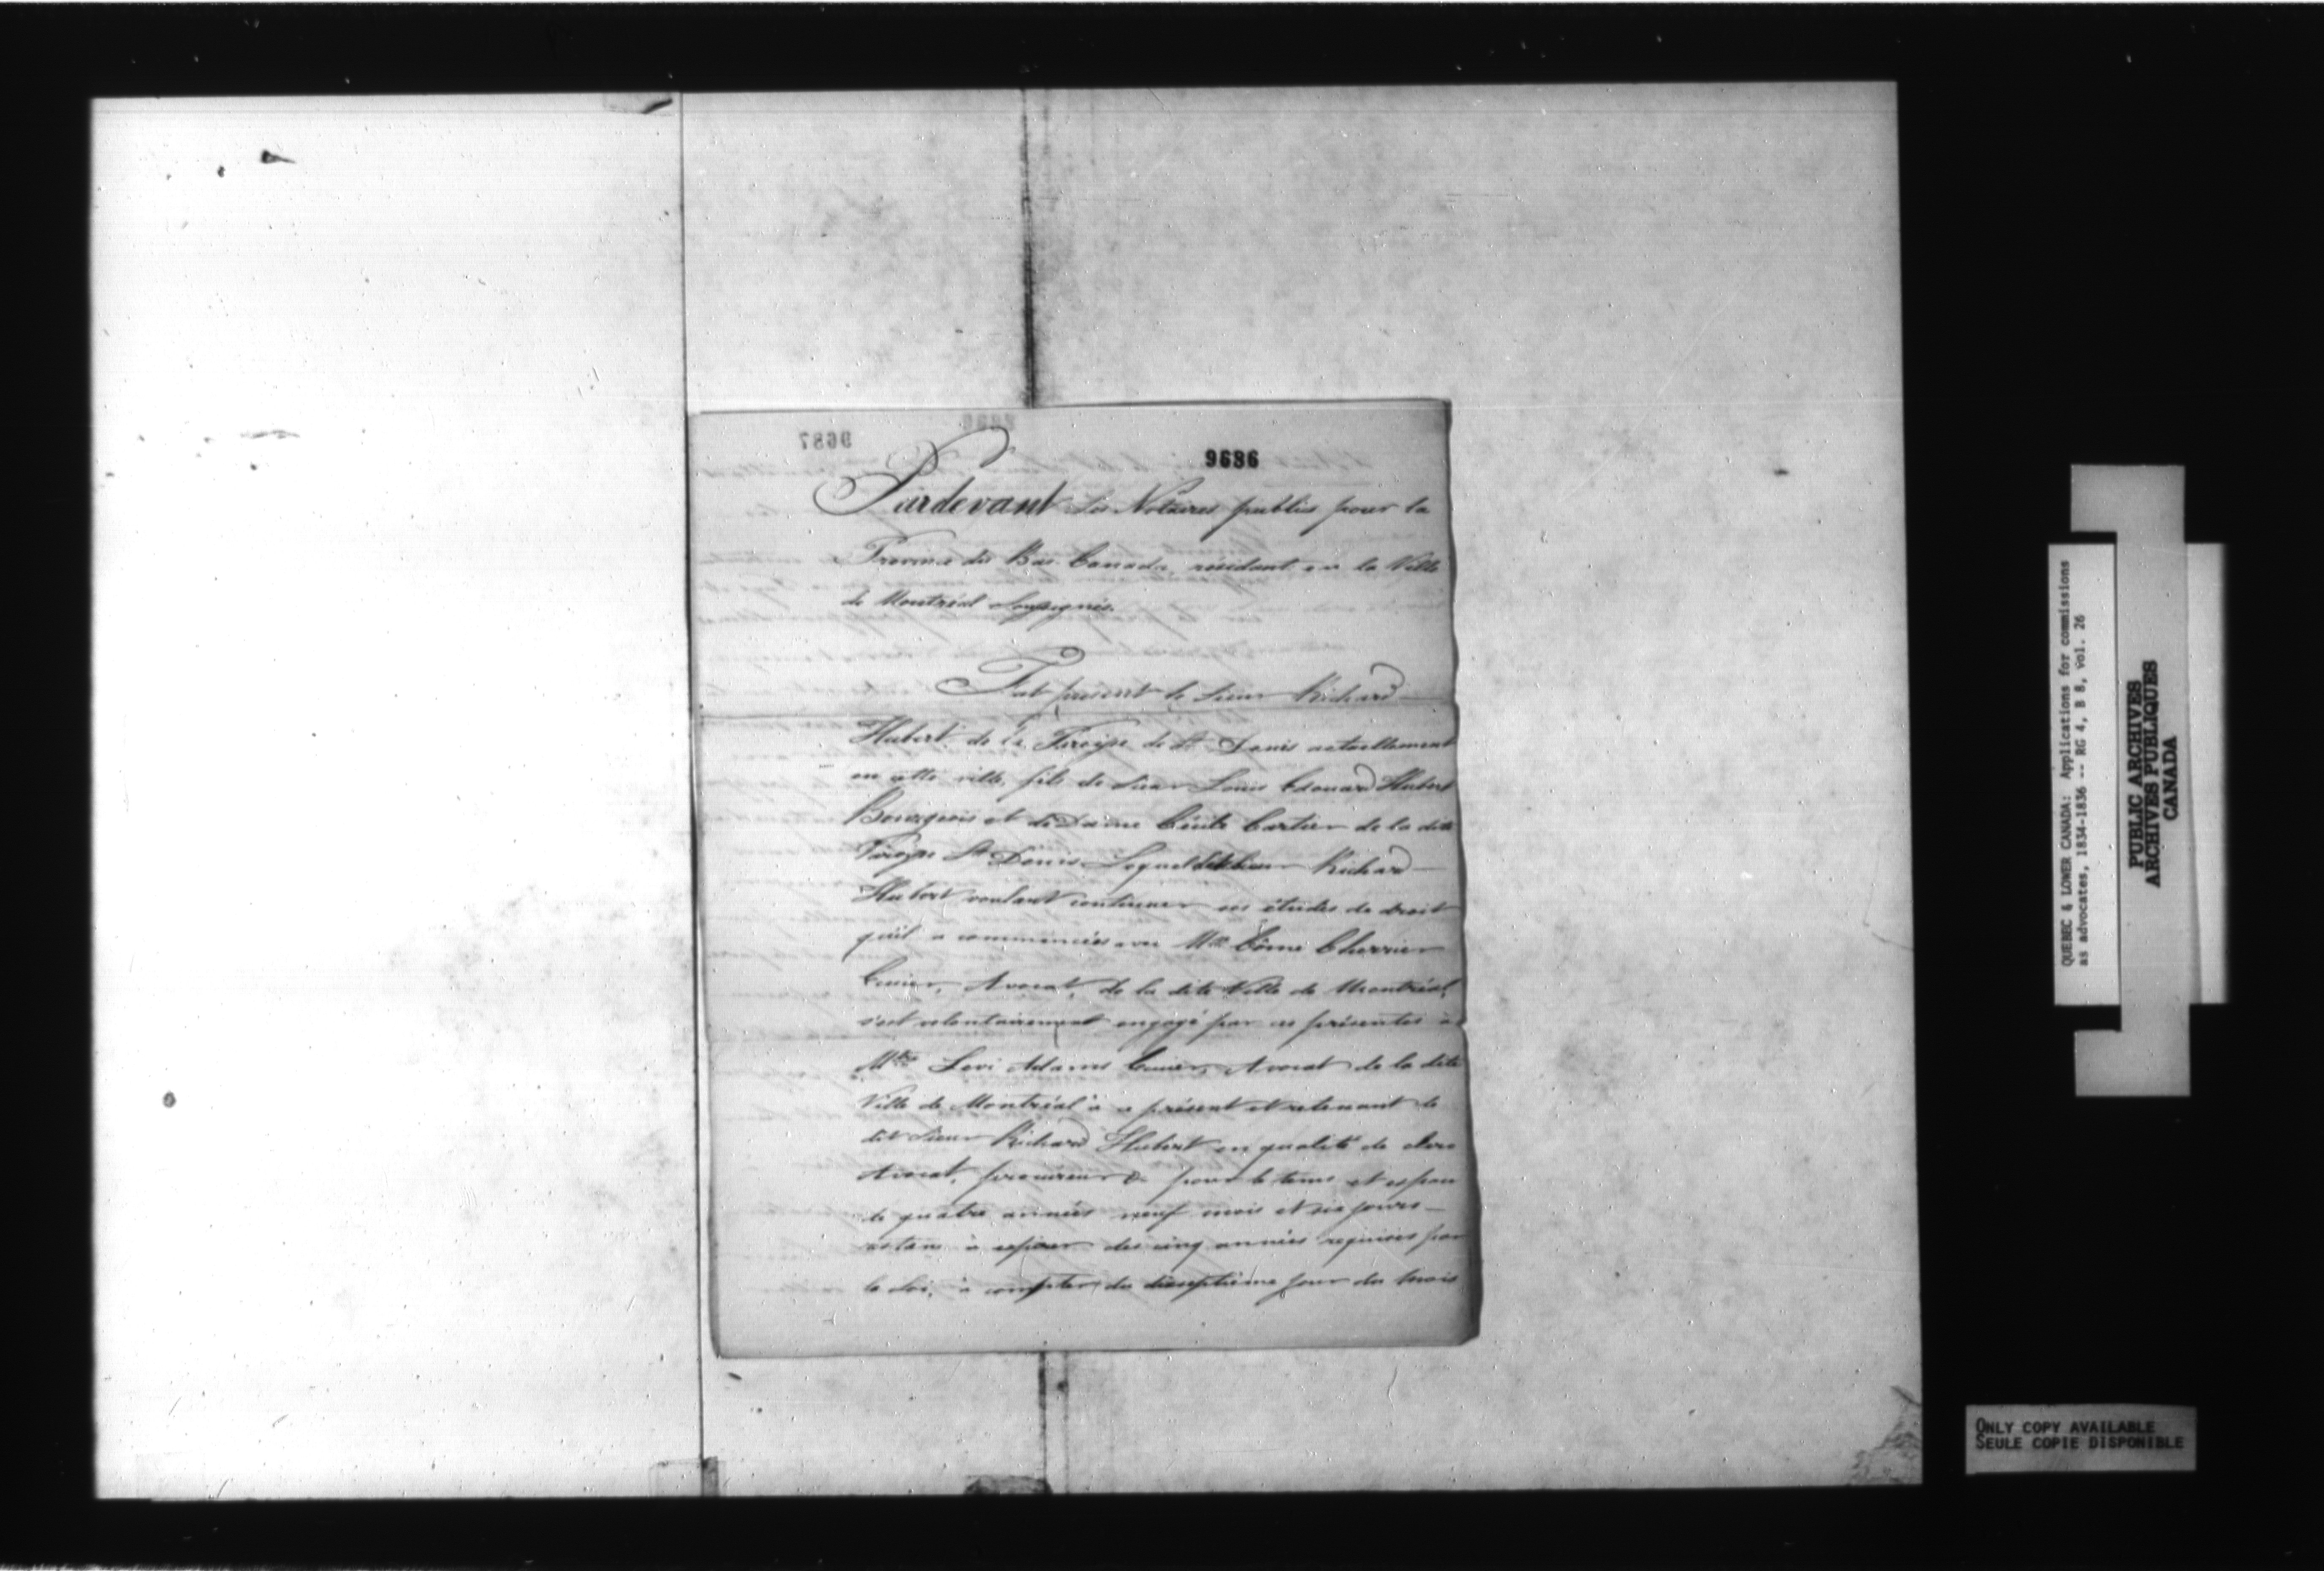 9686
Pardevant les Notaires publics pour la
Province du Bas Canada, résidant en la Ville
de Montréal Soussignés.
Fut présent le Sieur Richard
Hubert de la Paroisse de St Denis actuellement
en cette ville, fils de Sieur Louis Edouard Hubert
Bourgeois et de Dame Cécile Cartier de la dite
Paroisse St Denis. Lequel dit Sieur Richard
Hubert voulant continuer ses études de droit
qu'il a commencées avec Mtre Côme Cherrier
Ecuier, Avocat, de la dite Ville de Montréal,
s'est volontairement engagé par ces présentes à
Mtre Levi Adams Ecuier, Avocat de la dite
Ville de Montréal à ce présent et retenant le
dit Sieur Richard Hubert en qualité de clerc
Avocat, procureur &c pour le tems et espace
de quatre années neuf mois et six jours
restans à expirer des cinq années requises par
la loi, à compter du dixseptième jour du mois
9687
QUEBEC & LOWER CANADA: Applications for commissions
as advocates, 1834-1836 -- RG 4, B 8, vol. 26
PUBLIC ARCHIVES
ARCHIVES PUBLIQUES
CANADA
ONLY COPY AVAILABLE
SEULE COPIE DISPONIBLE